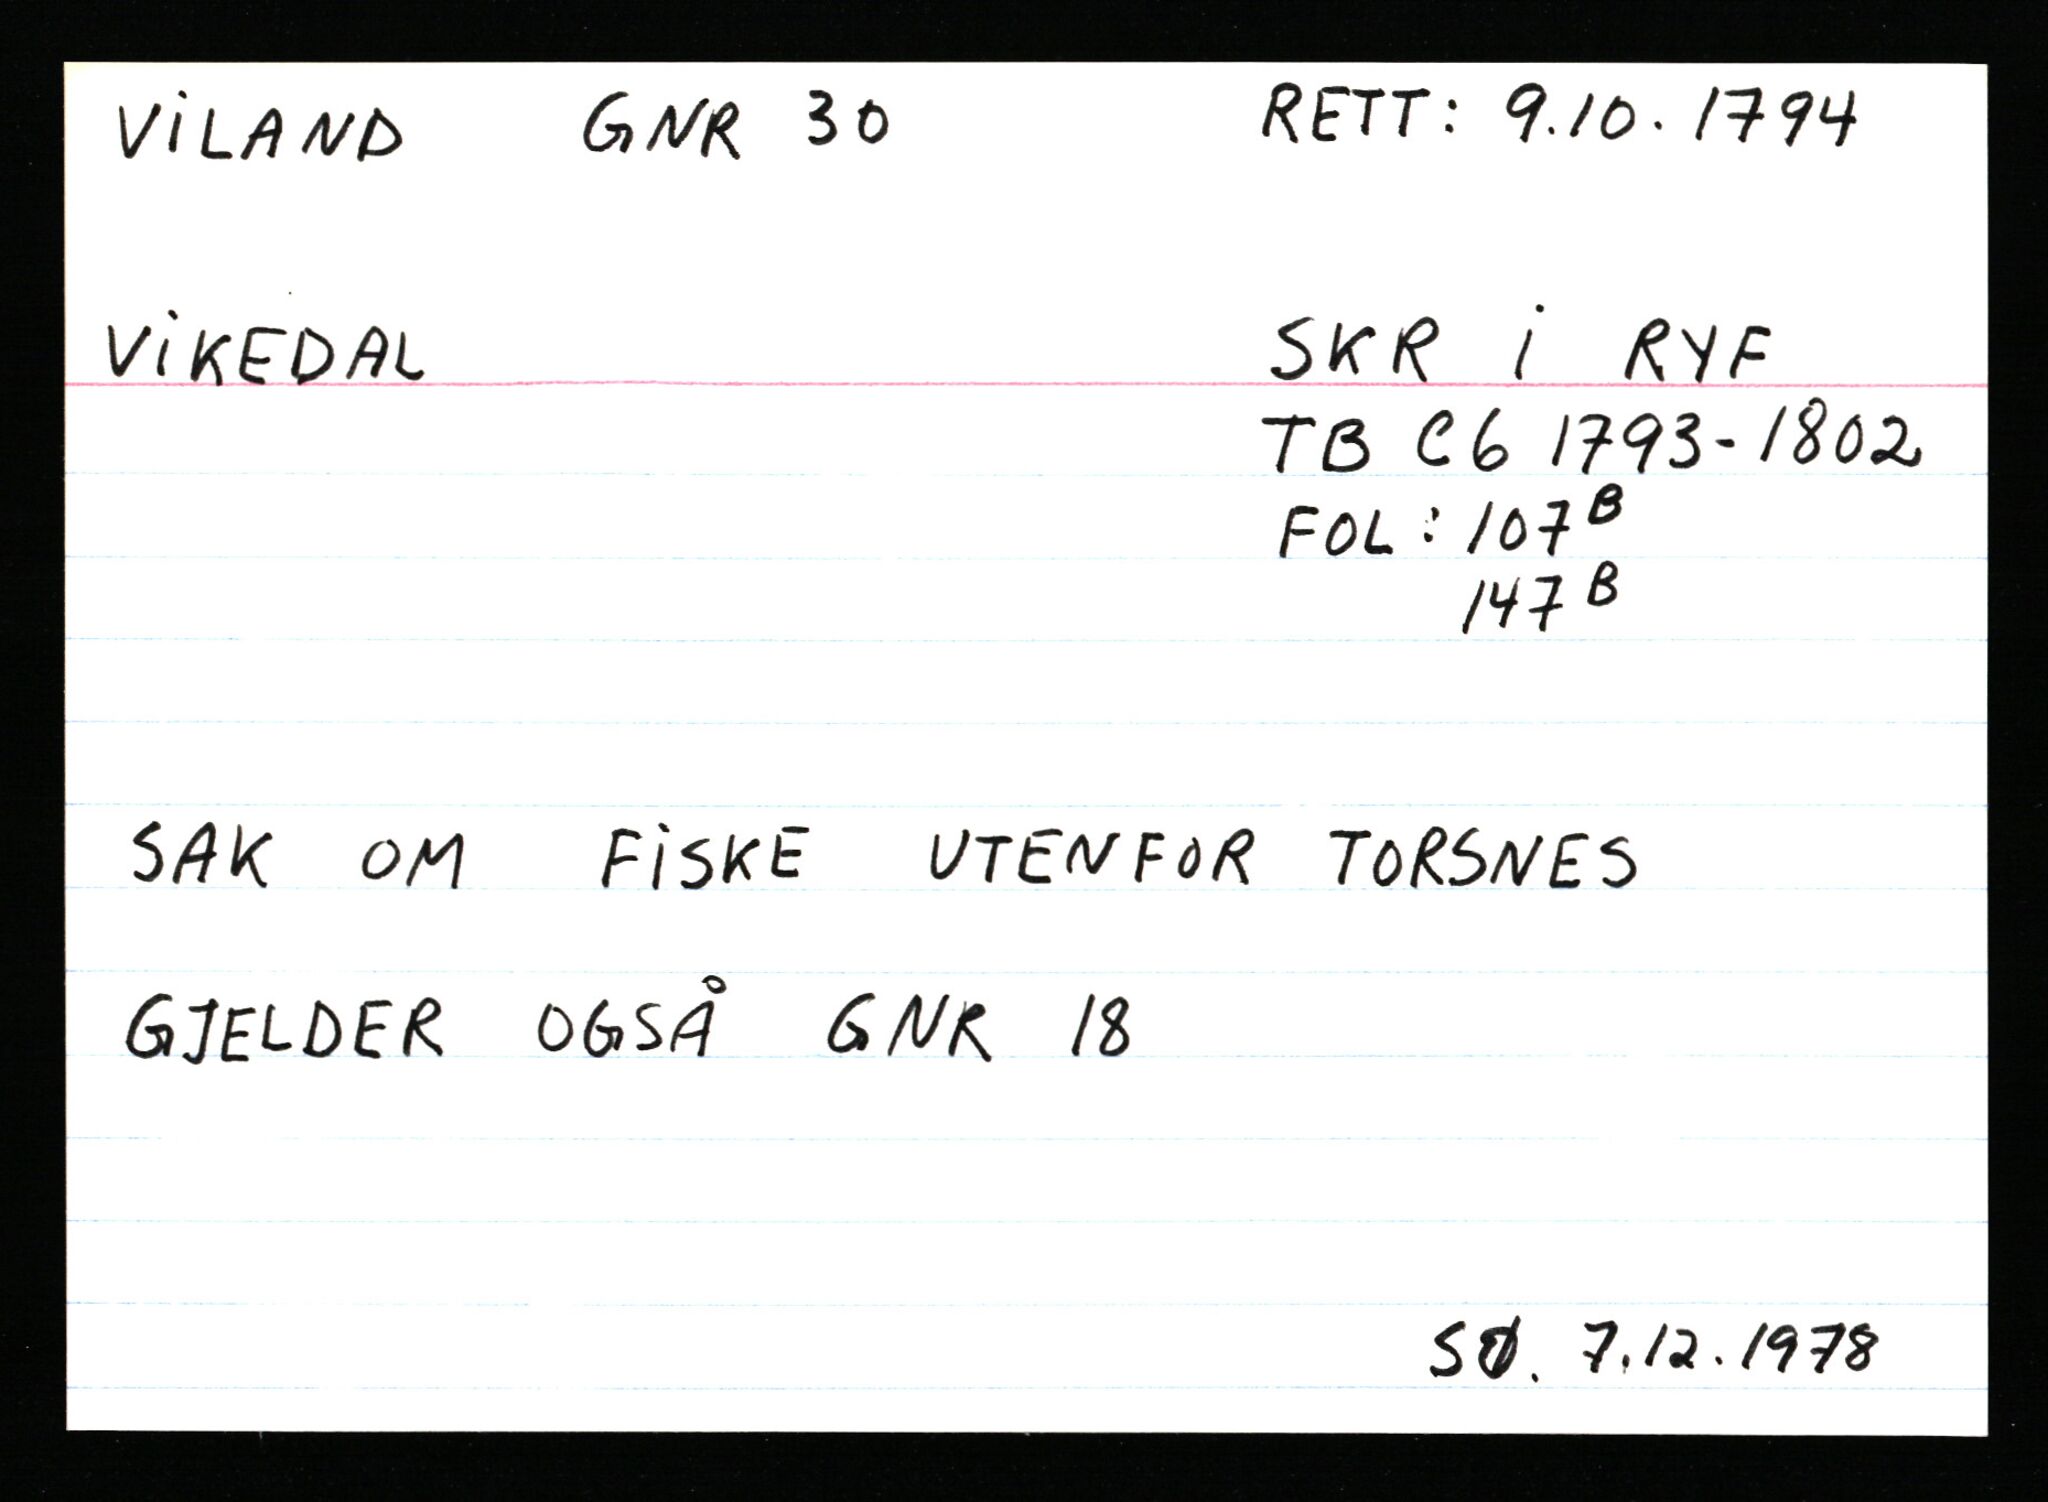 VILAND GNR 30 RETT: 9.10.1794
VIKEDAL SKR I RYF
TB C6 1793-1802
FOL: 107B
147B
SAK OM FISKE UTENFOR TORSNES
GJELDER OGSÅ GNR 18
SØ. 7.12.1978